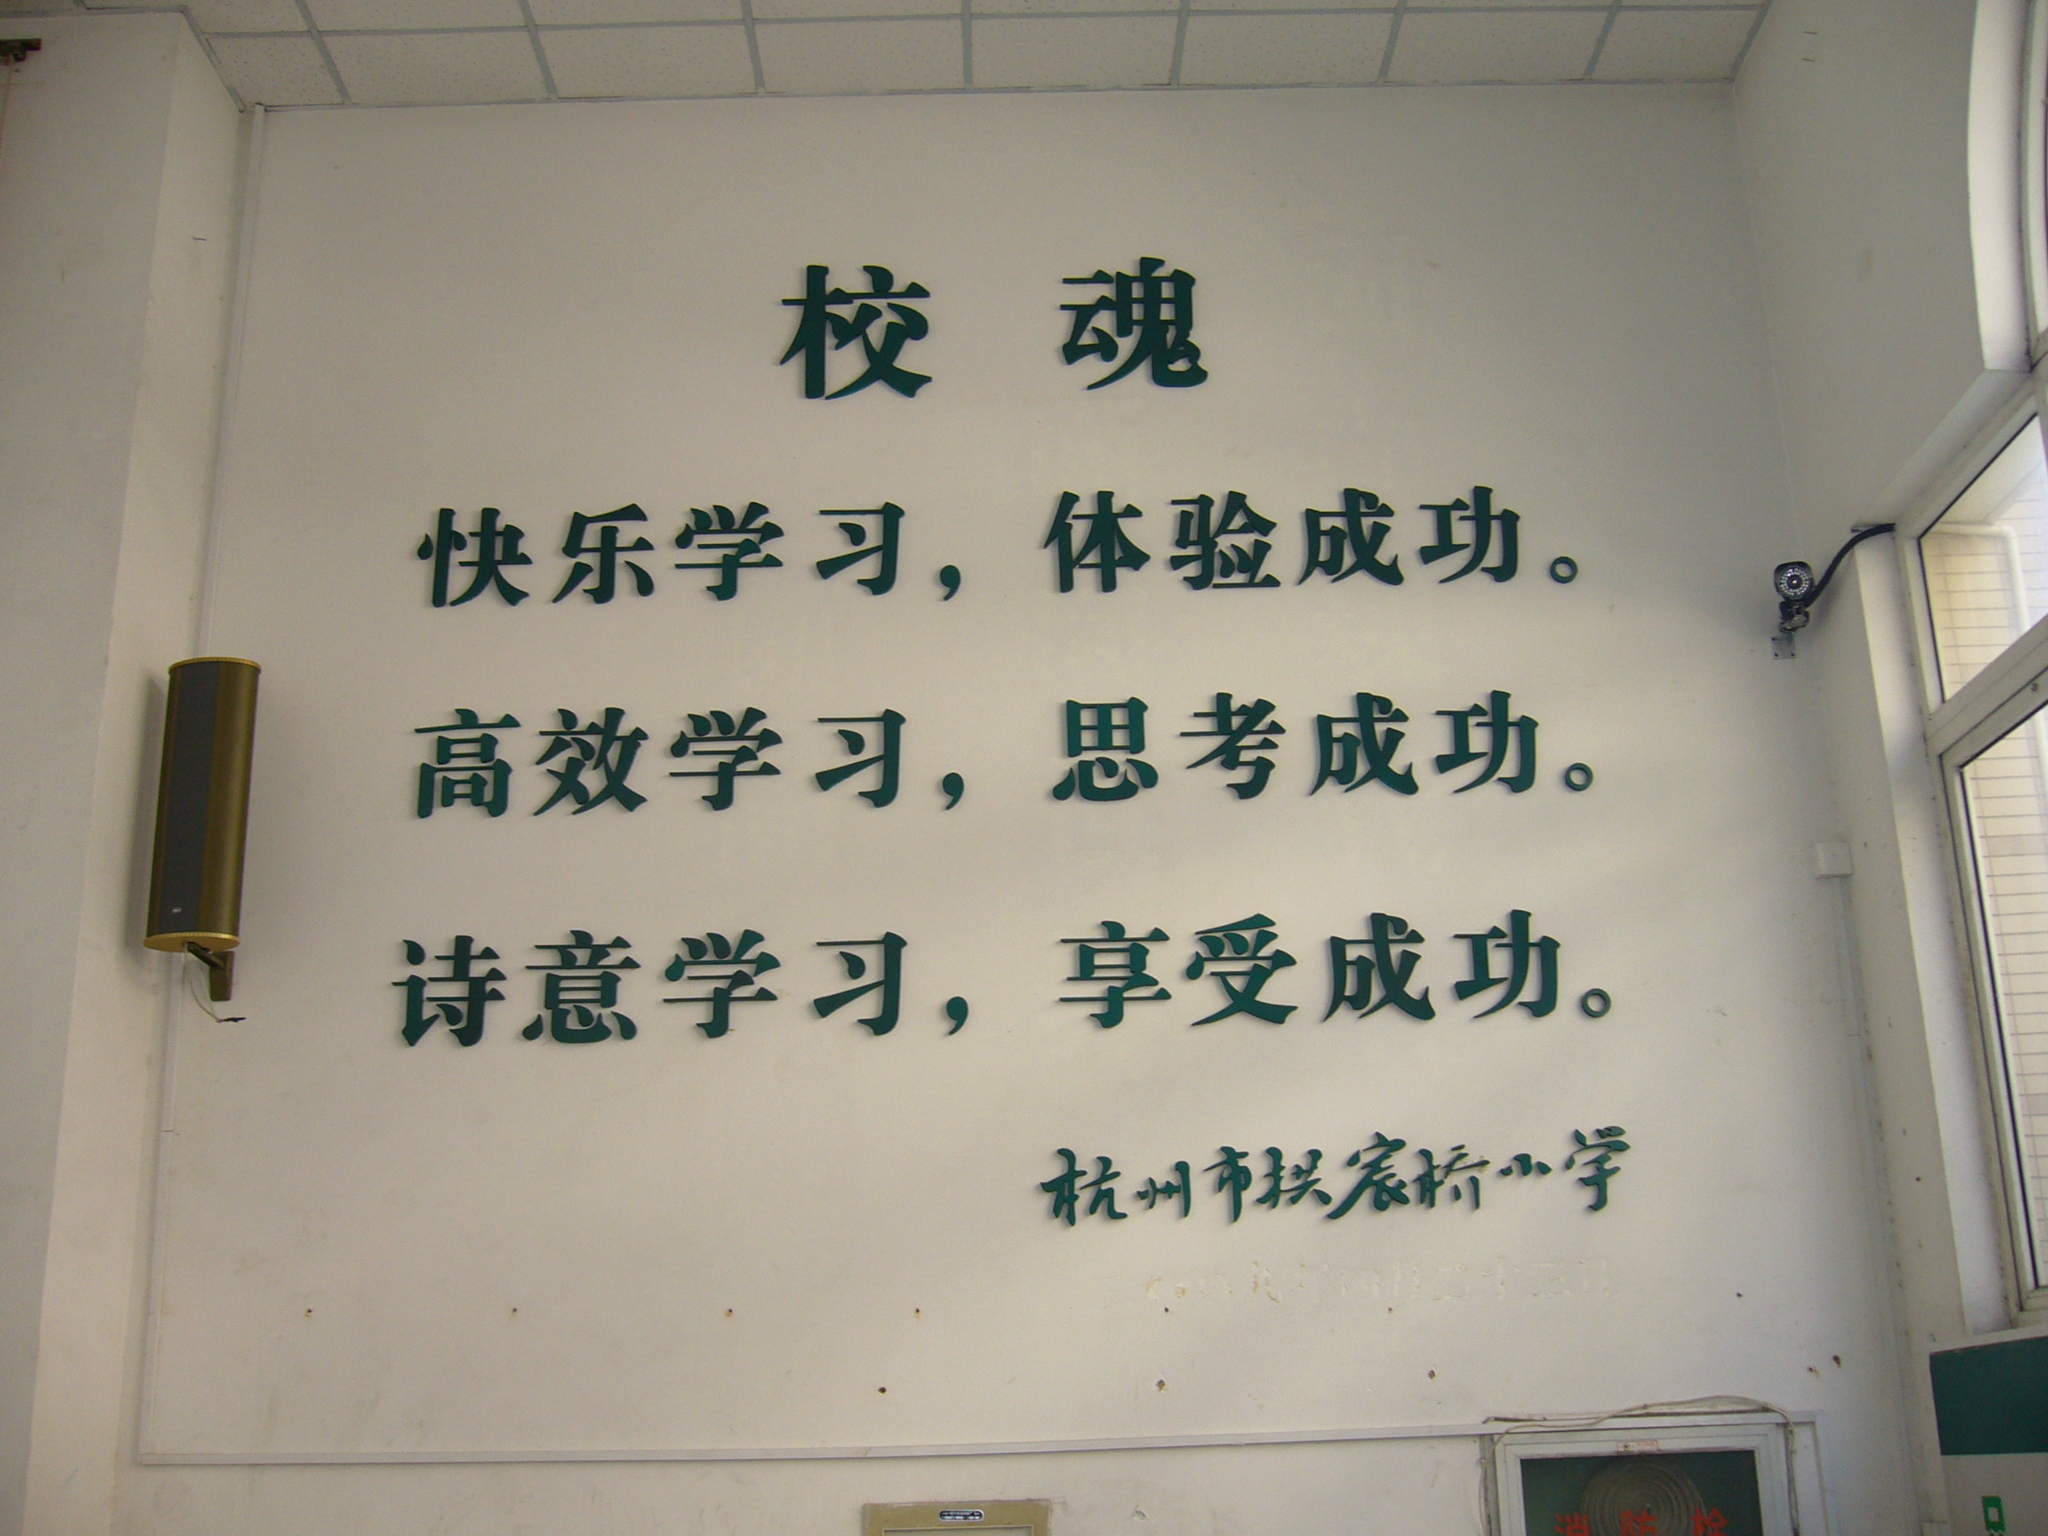 校 魂
快乐学习，体验成功。
高效学习，思考成功。
诗意学习，享受成功。
杭州市拱宸桥小学
消防栓